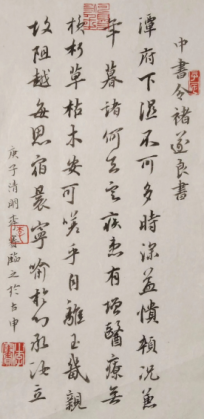 中書令褚遂良書
潭府下濕不可多時深益憒頼況兼
年暮諸何足言疾患有增醫療無
損朽草枯木安可嗟乎自離王畿親
故阻越每思宿曩寧喻朽心承汝立
庚子清明李臨之於古申